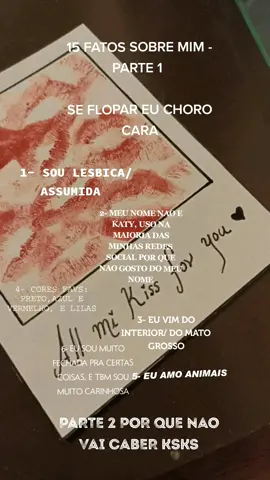 15 FATOS SOBRE MIM -
PARTE 1
SE FLOPAR EU CHORO
CARA
1- SOU LESBICA/
ASSUMIDA
2- MEU NOME NAO E
KATY, USO NA
MAIORIA DAS
MINHAS REDES
SOCIAL POR QUE
NAO GOSTO DO MEU
NOME
3- EU VIM DO
INTERIOR/ DO MATO
GROSSO
4- CORES FAVS:
PRETO,AZUL E
VERMELHO, E LILAS
All mi Kiss for you ♥
5- EU AMO ANIMAIS
6-EU SOU MUITO
FECHADA PRA CERTAS
COISAS, E TBM SOU
MUITO CARINHOSA
PARTE 2 POR QUE NAO
VAI CABER KSKS